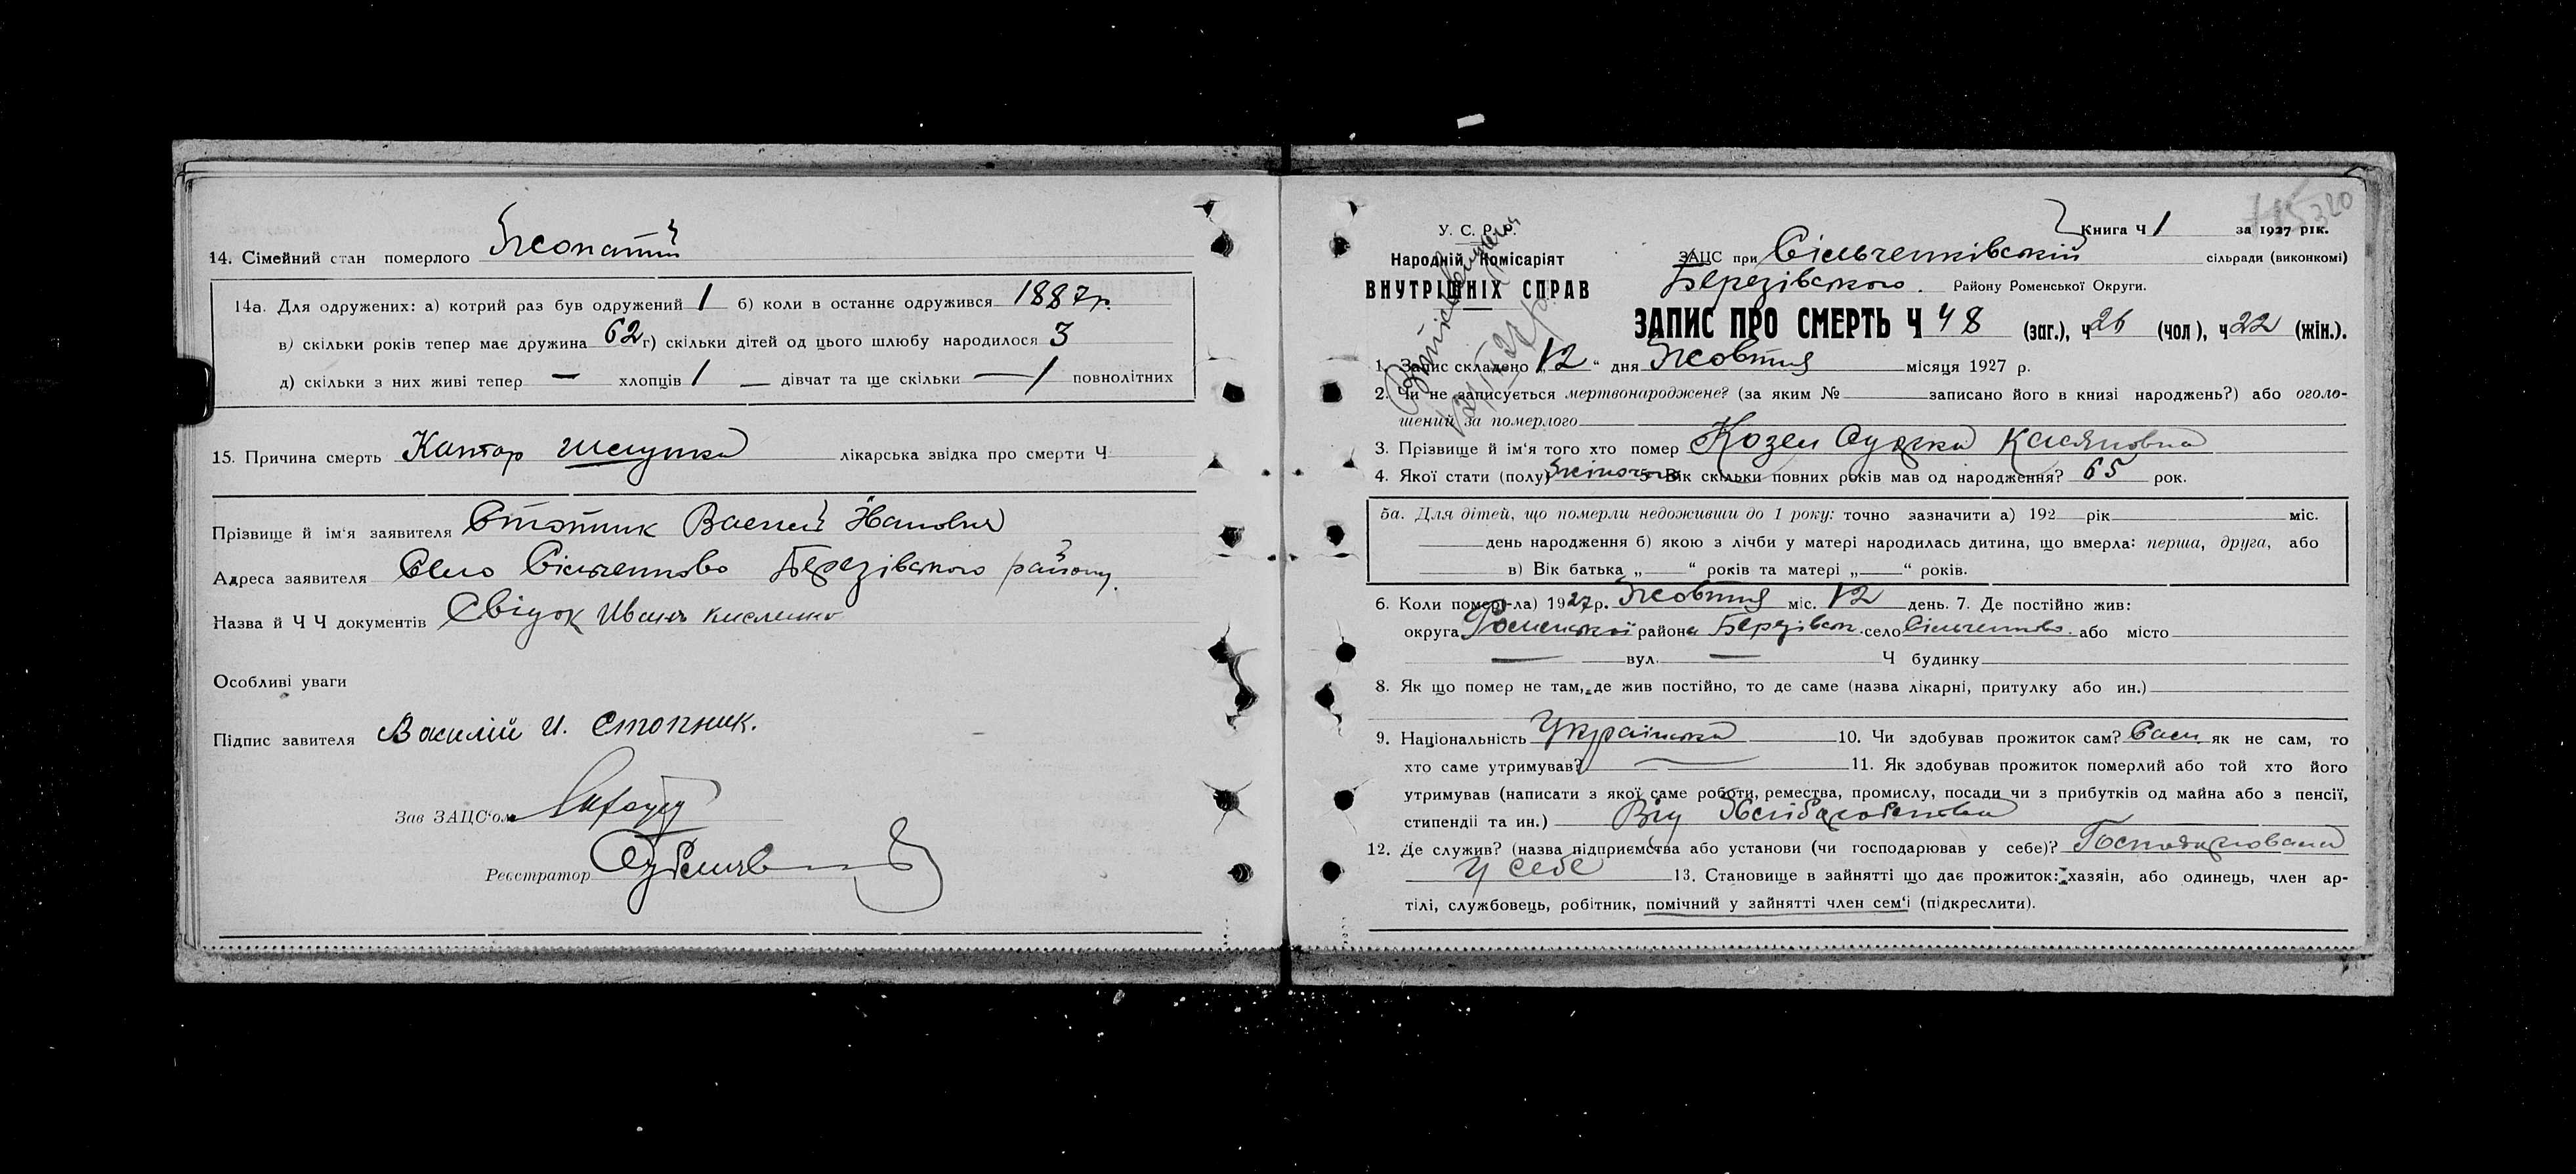 14. Сімейний стан померлого Жонатий
14а. Для одружених: а) котрий раз був одружений 1 б) коли в останнє одружився 1887 р.
в) скільки років тепер має дружина 62 г) скільки дітей од цього шлюбу народилося 3
д) скільки з них живі тепер — хлопців 1 — дівчат та ще скільки — 1 повнолітних
15. Причина смерть Кантар шелунка лікарська звідка про смерти Ч
Прізвище й ім'я заявителя Стопник Василий Иванович
Адреса заявителя Село Сільченково Березівського району.
Назва й Ч Ч документів Свідок Иванъ Кисленко
Особливі уваги
Підпис завителя Василій И. Стопник.
Зав ЗАЦС'ом
Реєстратор
715 320
У. С. Р. Р.
Народній Комісаріят
ВНУТРІШНІХ СПРАВ
Книга Ч 1 за 1927 рік.
ЗАЦС при Сільченківській сільради (виконкомі)
Березівського. Району Роменської Округи.
ЗАПИС ПРО СМЕРТЬ Ч 48 (заг.), ч 26 (чол), ч 22 (жін.).
1. Запис складено „12“ дня Жовтня місяця 1927 р.
2. Чи не записується мертвонароджене? (за яким № записано його в книзі народжень?) або оголо-
шений за померлого
3. Прізвище й ім'я того хто помер Козел Касяновна
4. Якої стати (полу) Жіночого 5. Вік скільки повних років мав од народження? 65 рок.
5а. Для дітей, що померли недоживши до 1 року: точно зазначити а) 192 рік міс.
день народження б) якою з лічби у матері народилась дитина, що вмерла: перша, друга, або
в) Вік батька „ “ років та матері „ “ років.
6. Коли помер(-ла) 1927 р. Жовтня міс. 12 день. 7. Де постійно жив:
округа Роменської района Березівськ. село Сільченково. або місто
— вул. — Ч будинку
8. Як що помер не там, де жив постійно, то де саме (назва лікарні, притулку або ин.)
9. Національність Українка 10. Чи здобував прожиток сам? Сам. як не сам, то
хто саме утримував? — 11. Як здобував прожиток померлий або той хто його
утримував (написати з якої саме роботи, ремества, промислу, посади чи з прибутків од майна або з пенсії,
стипендії та ин.) Від Хлібаробства
12. Де служив? (назва підприємства або установи (чи господарював у себе)? Господарювала
у себе 13. Становище в зайнятті що дає прожиток: хазяін, або одинець, член ар-
тілі, службовець, робітник, помічний у зайнятті член сем'і (підкреслити).